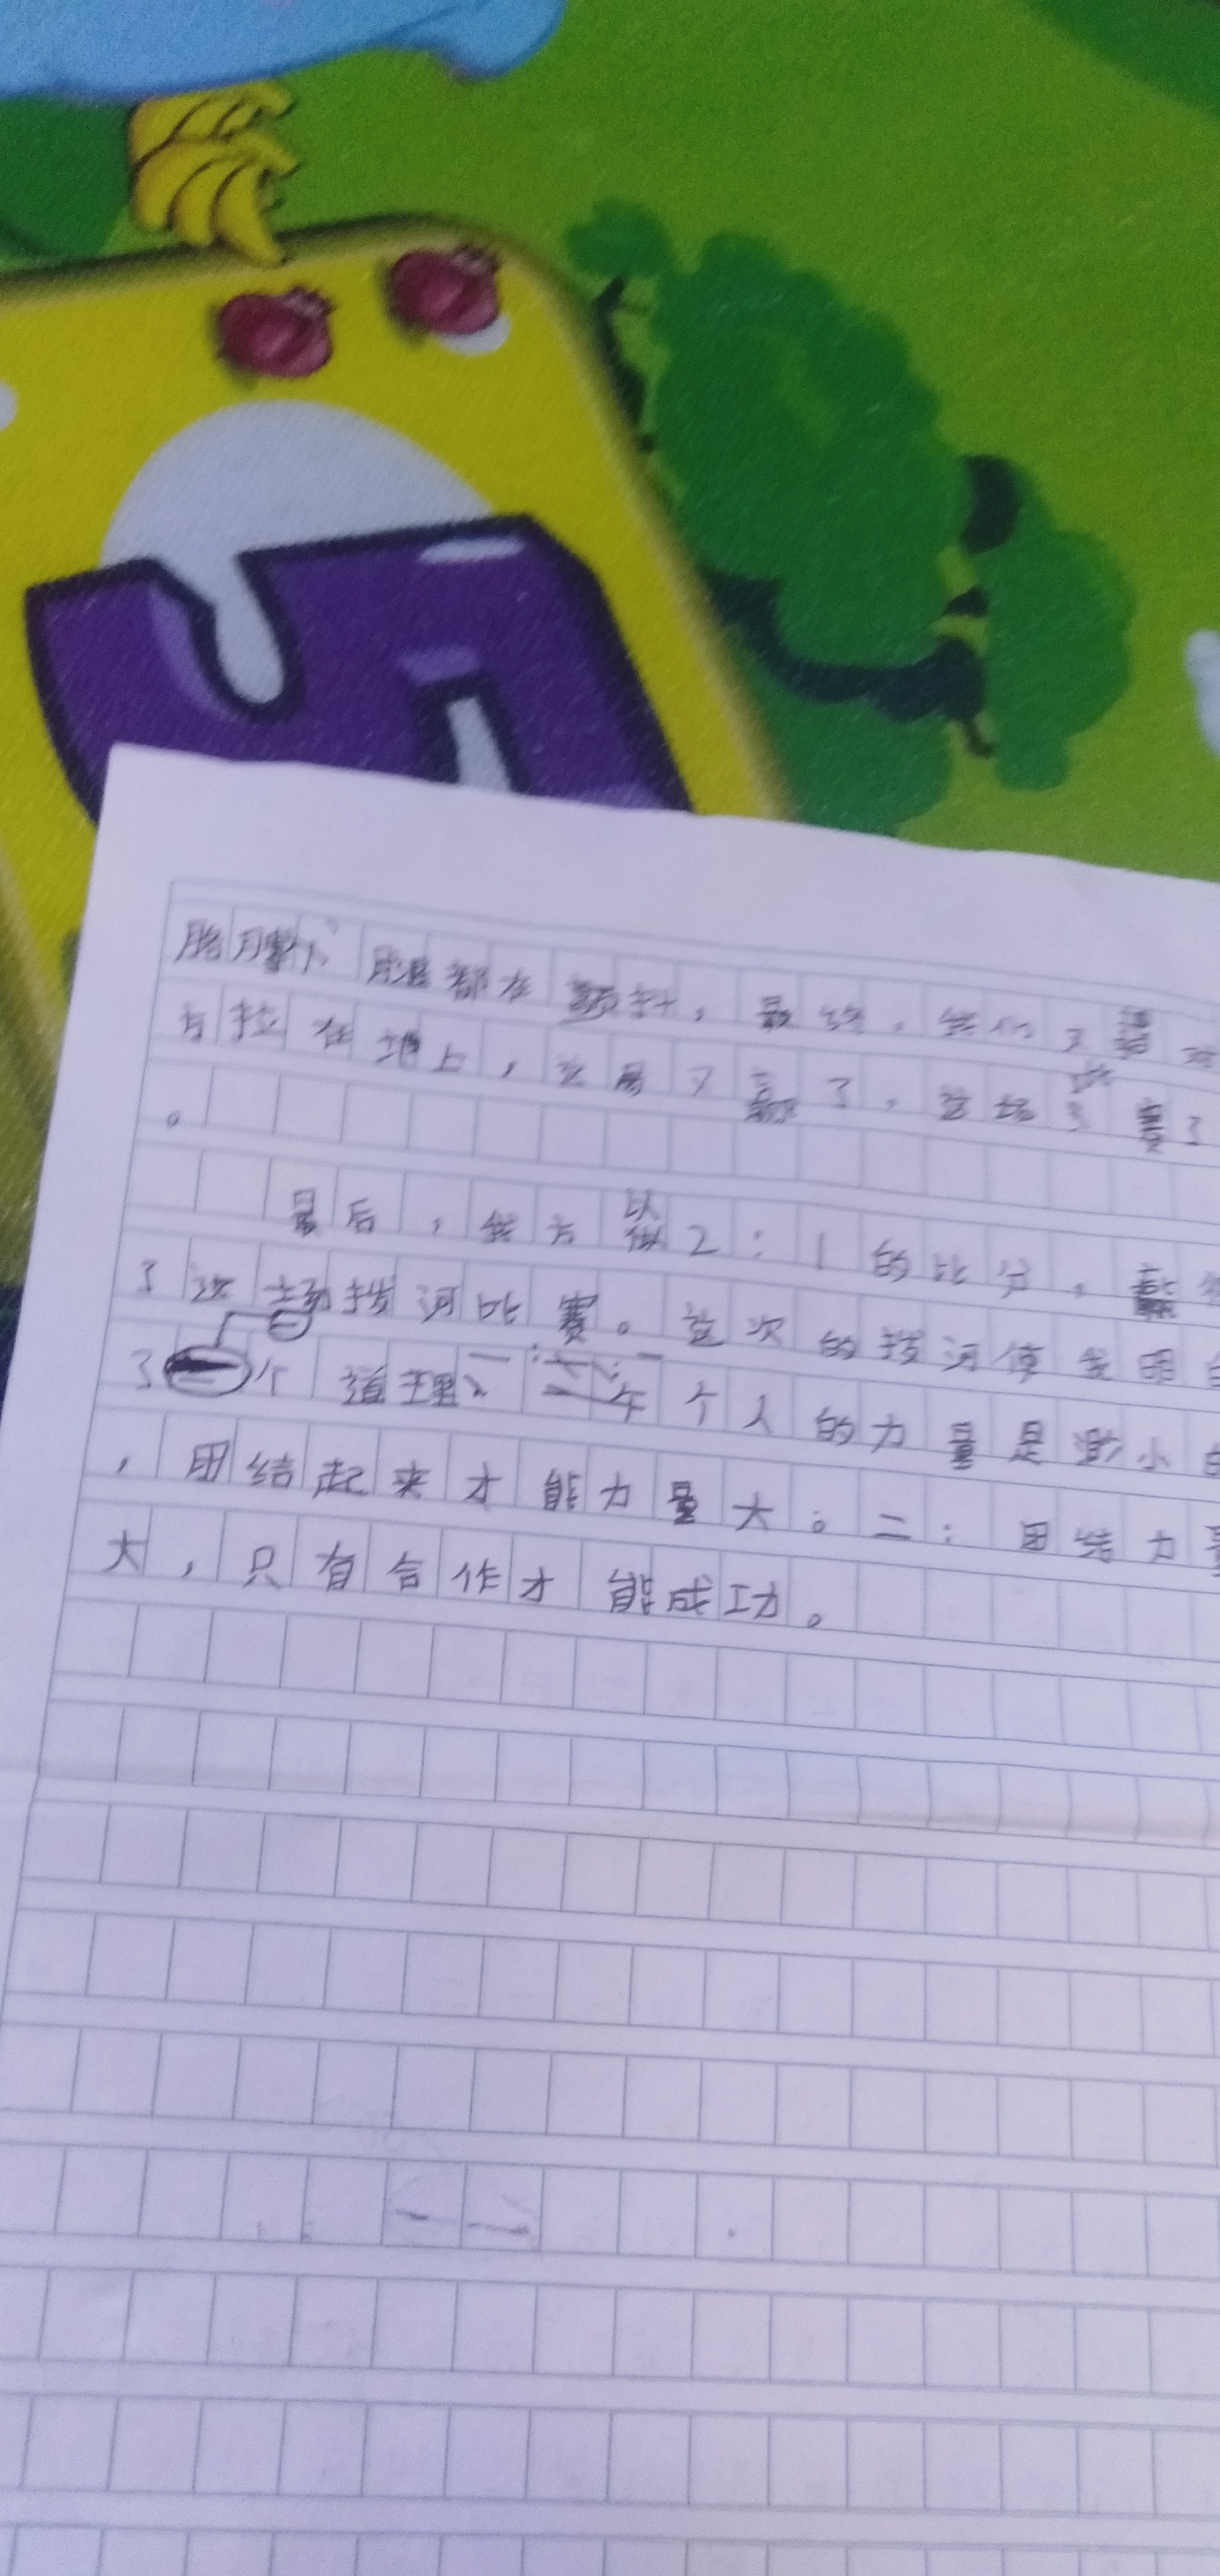 胳膊、腿都在颤抖，最终，我们又把对
方拉在地上，这局又赢了，这场我赢了
。
最后，我方以2：1的比分，赢得
了这场拔河比赛。这次的拔河使我明白
了二个道理：一：一个人的力量是渺小的
，团结起来才能力量大；二：团结力量
大，只有合作才能成功。